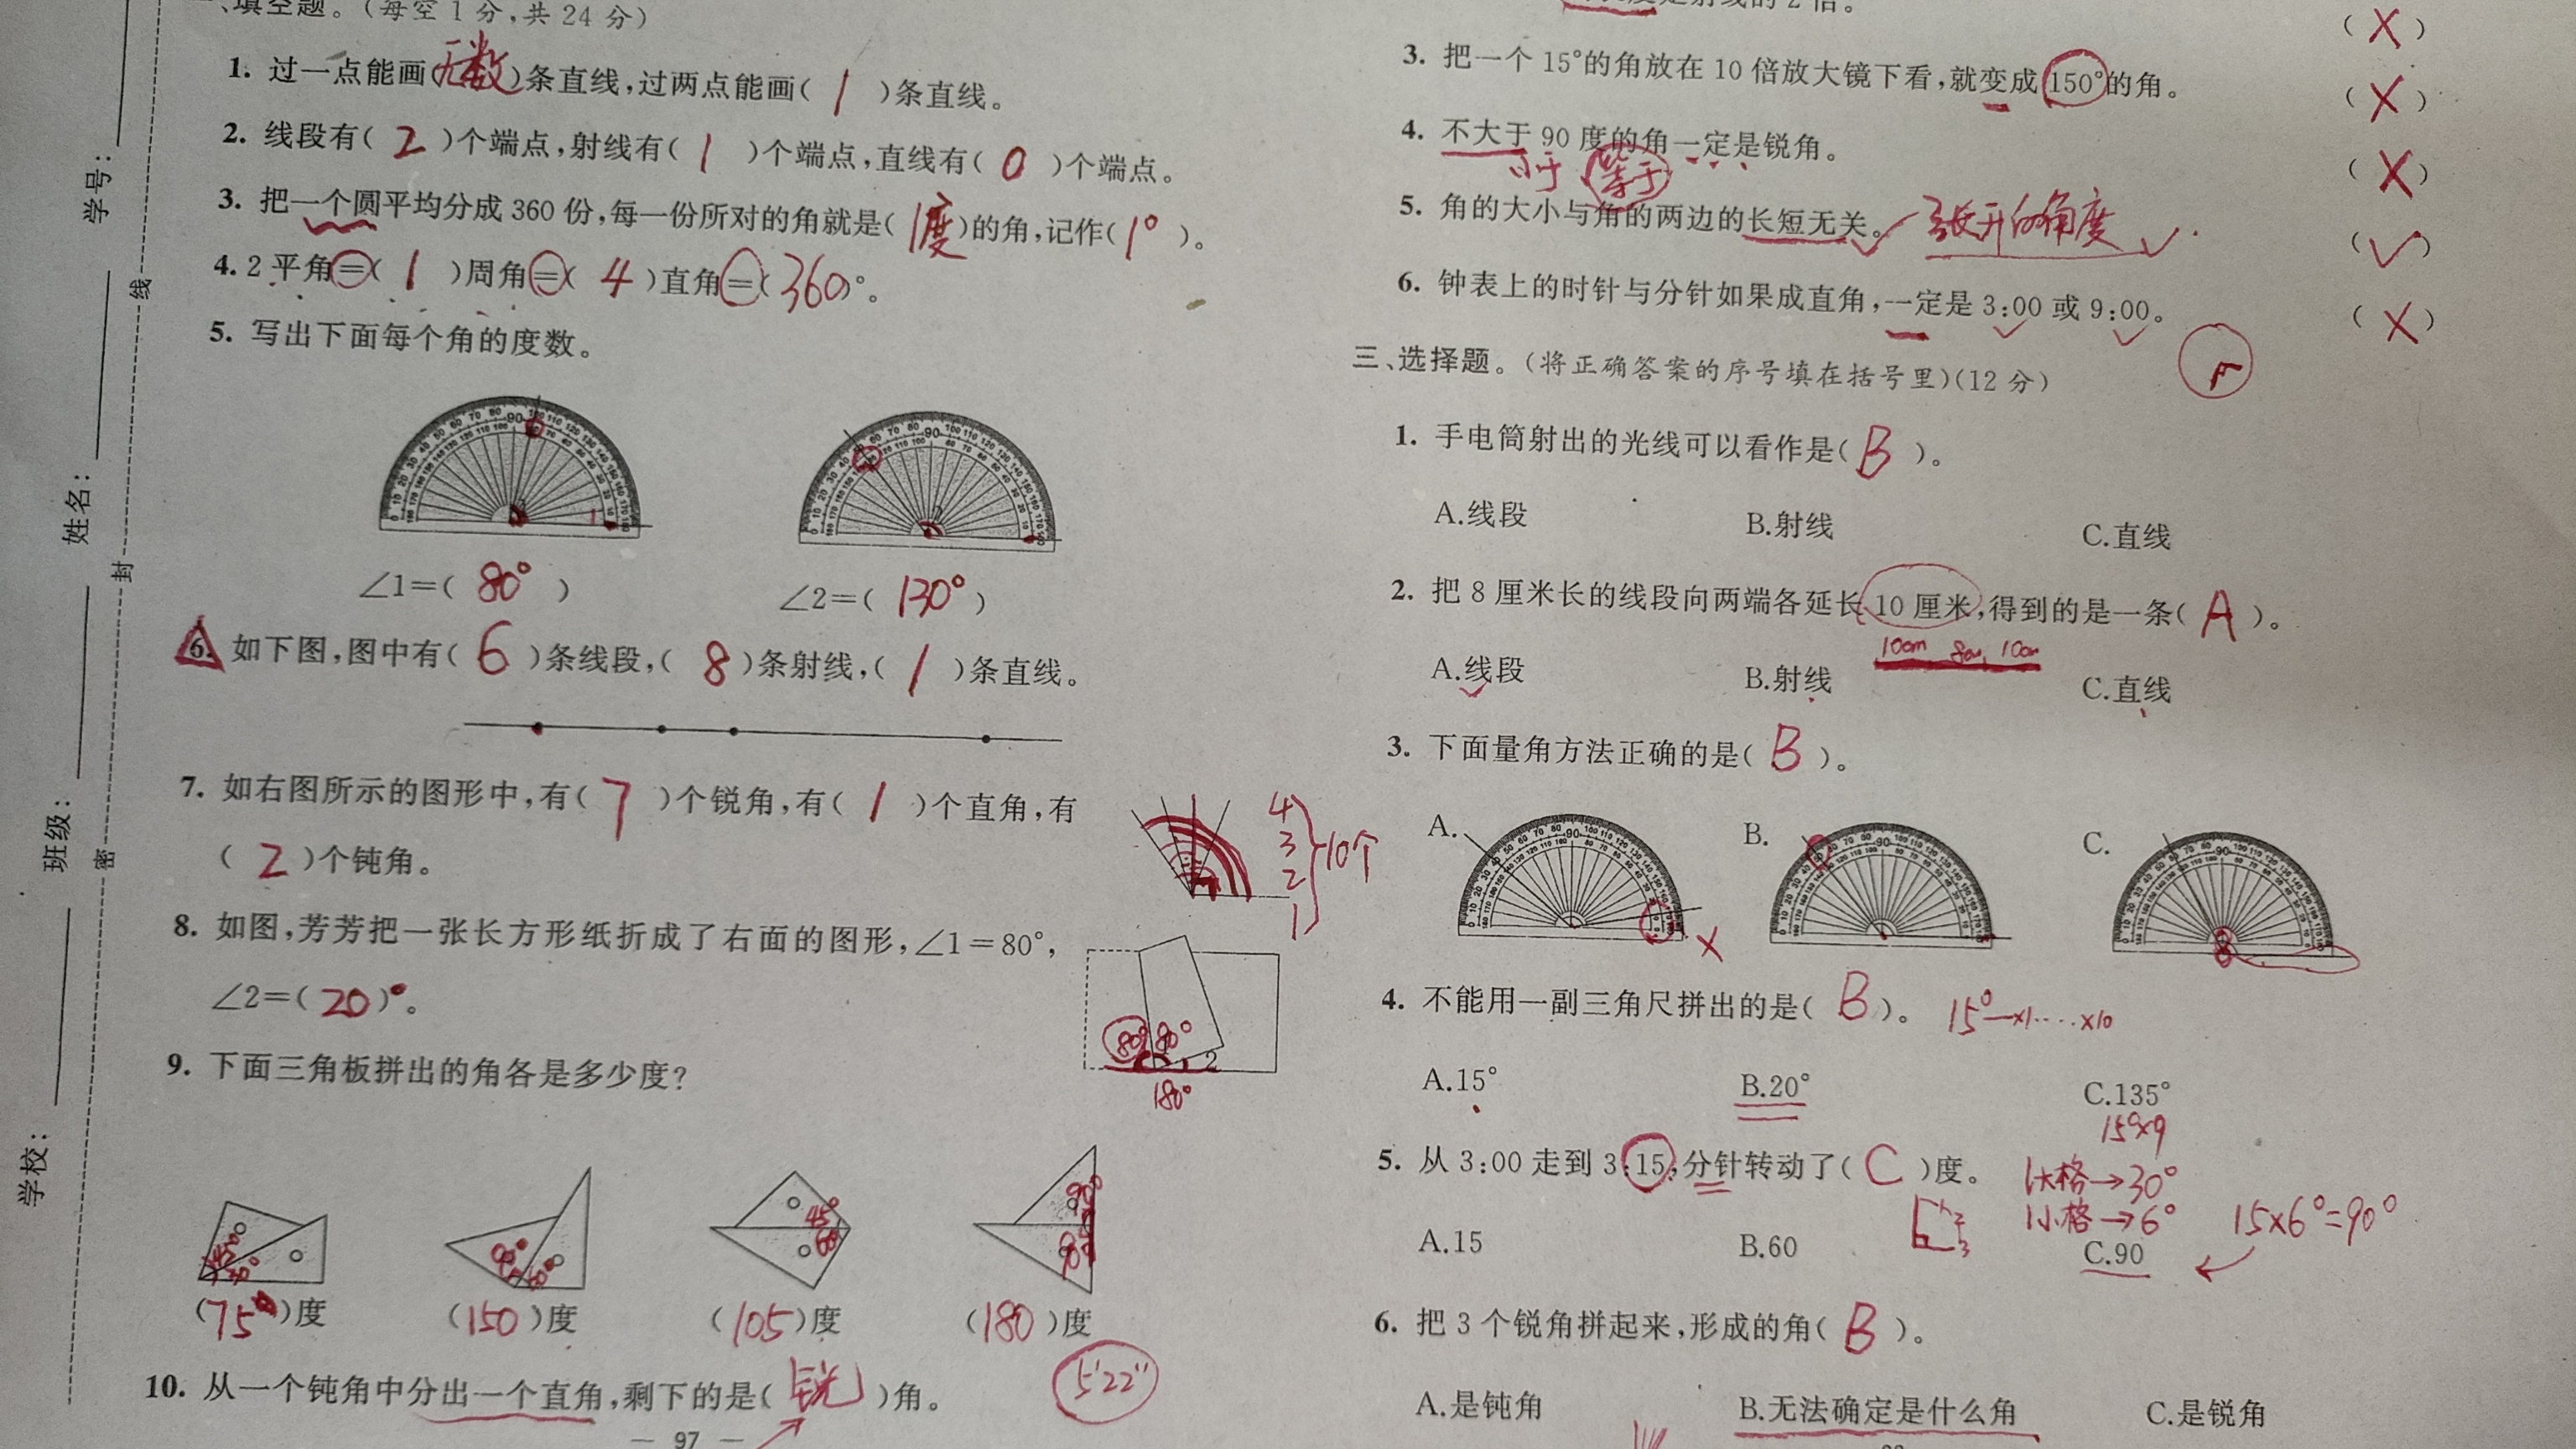 学校：
班级：
姓名：
学号：
密
封
线
一、填空题。（每空 1 分，共 24 分）
1. 过一点能画（无数）条直线，过两点能画（ 1 ）条直线。
2. 线段有（ 2 ）个端点，射线有（ 1 ）个端点，直线有（ 0 ）个端点。
3. 把一个圆平均分成 360 份，每一份所对的角就是（1度）的角，记作（1°）。
4. 2 平角＝（ 1 ）周角＝（ 4 ）直角＝（360）°。
5. 写出下面每个角的度数。
∠1＝（ 80° ）
∠2＝（ 130° ）
6. 如下图，图中有（ 6 ）条线段，（ 8 ）条射线，（ 1 ）条直线。
7. 如右图所示的图形中，有（ 7 ）个锐角，有（ 1 ）个直角，有
（ 2 ）个钝角。
4
3
2
1
10个
8. 如图，芳芳把一张长方形纸折成了右面的图形，∠1＝80°，
∠2＝（20）°。
80° 80° 2
180°
9. 下面三角板拼出的角各是多少度？
45° 30°
90° 60°
45° 60°
90° 90°
（75°）度
（150）度
（105）度
（180）度
10. 从一个钝角中分出一个直角，剩下的是（ 锐 ）角。
5'22"
— 97 —
是射线的 2 倍。
（ X ）
3. 把一个 15°的角放在 10 倍放大镜下看，就变成 150°的角。
（ X ）
4. 不大于 90 度的角一定是锐角。
（ X ）
小于 等于
5. 角的大小与角的两边的长短无关。 张开的角度
（ ✓ ）
6. 钟表上的时针与分针如果成直角，一定是 3:00 或 9:00。
（ X ）
三、选择题。（将正确答案的序号填在括号里）（12 分）
1. 手电筒射出的光线可以看作是（ B ）。
A.线段 B.射线 C.直线
2. 把 8 厘米长的线段向两端各延长 10 厘米，得到的是一条（ A ）。
10cm 8cm 10cm
A.线段 B.射线 C.直线
3. 下面量角方法正确的是（ B ）。
A. B. C.
4. 不能用一副三角尺拼出的是（ B ）。 15°—×1····×10
A.15° B.20° C.135°
15°×9
5. 从 3:00 走到 3:15，分针转动了（ C ）度。
1大格→30°
1小格→6° 15×6°=90°
A.15 B.60 C.90
6. 把 3 个锐角拼起来，形成的角（ B ）。
A.是钝角 B.无法确定是什么角 C.是锐角